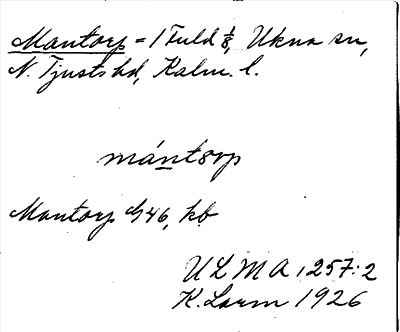 Mantorp = 1 Fuld 1/8, Ukna sn,
N. Tjusts hd, Kalm. l.
mántorp
Mantorp G46, kb
ULMA 1257:2
K. Lorm 1926